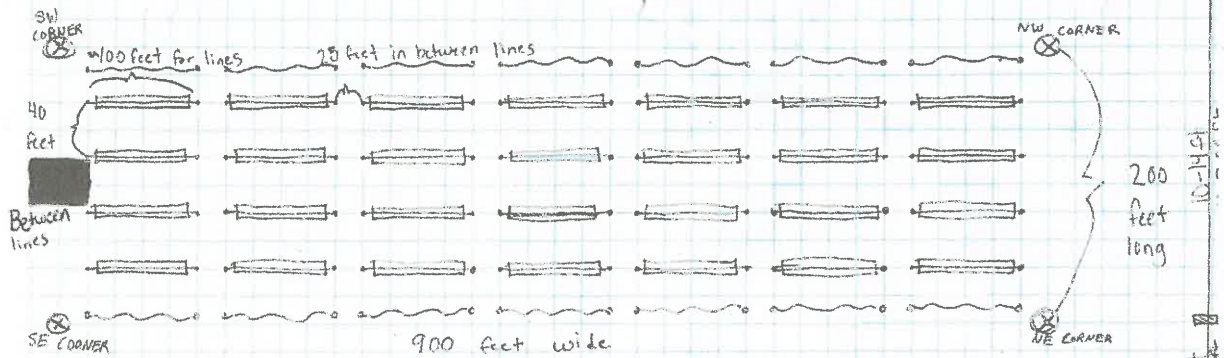 SW
CORNER
~100 feet for lines
25 feet in between lines
NW CORNER
40
feet
Between
lines
200
feet
long
SE CORNER
900 feet wide
NE CORNER